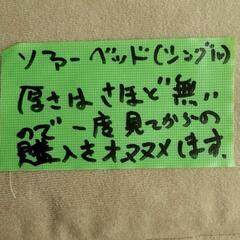 ソファーベッド(シングル)
厚さはさほど無い
ので一度見てからの
購入をオススメします.